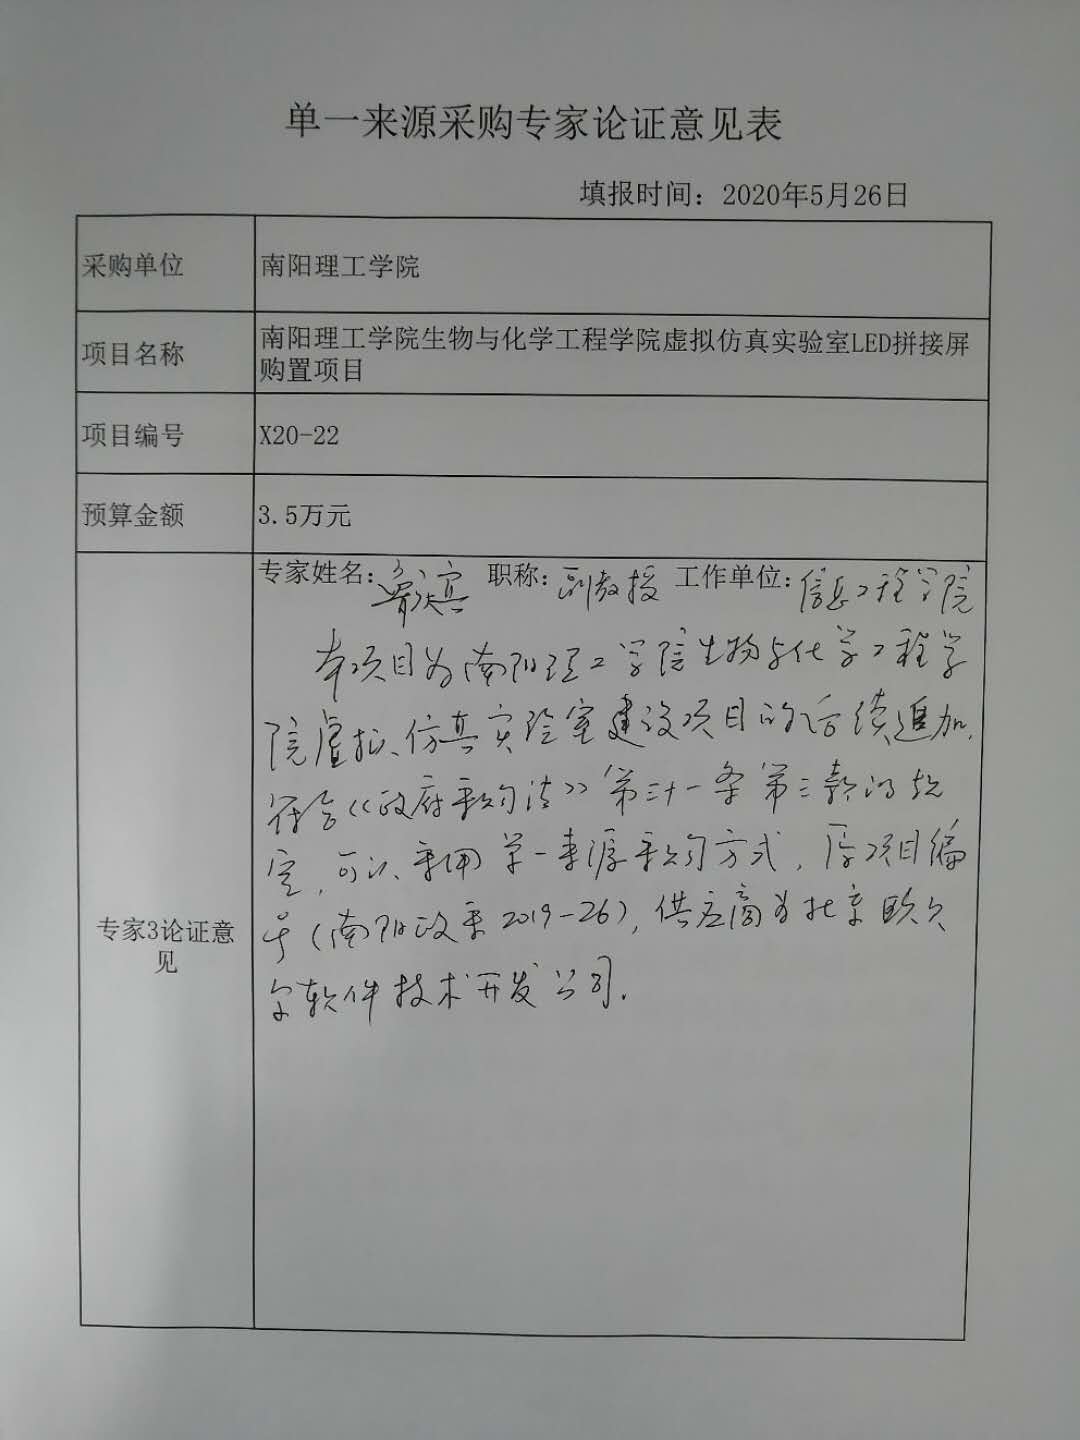 单一来源采购专家论证意见表
填报时间：2020年5月26日
采购单位
南阳理工学院
项目名称
南阳理工学院生物与化学工程学院虚拟仿真实验室LED拼接屏
购置项目
项目编号
X20-22
预算金额
3.5万元
专家3论证意
见
专家姓名： 职称：副教授 工作单位：信息工程学院
本项目为南阳理工学院生物与化学工程学
院虚拟仿真实验室建设项目的后续追加，
符合《政府采购法》第三十一条第三款的规
定，可以采用单一来源采购方式，原项目编
号（南阳政采2019-26），供应商为北京欧贝
尔软件技术开发公司．